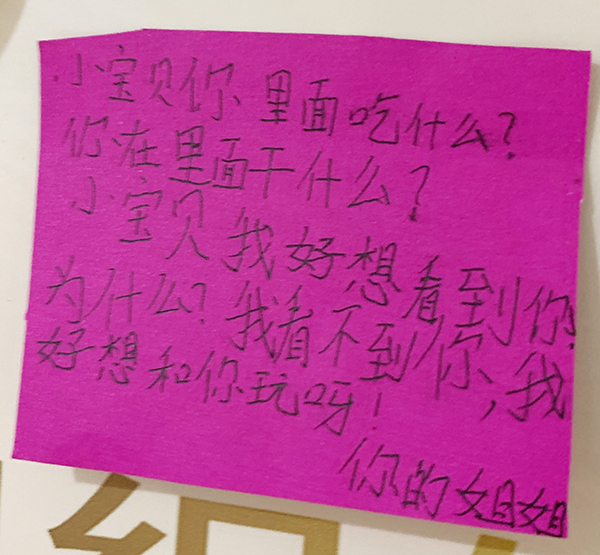 小宝贝你里面吃什么?
你在里面干什么?
小宝贝我好想看到你!
为什么?我看不到你,我
好想和你玩呀!
你的姐姐